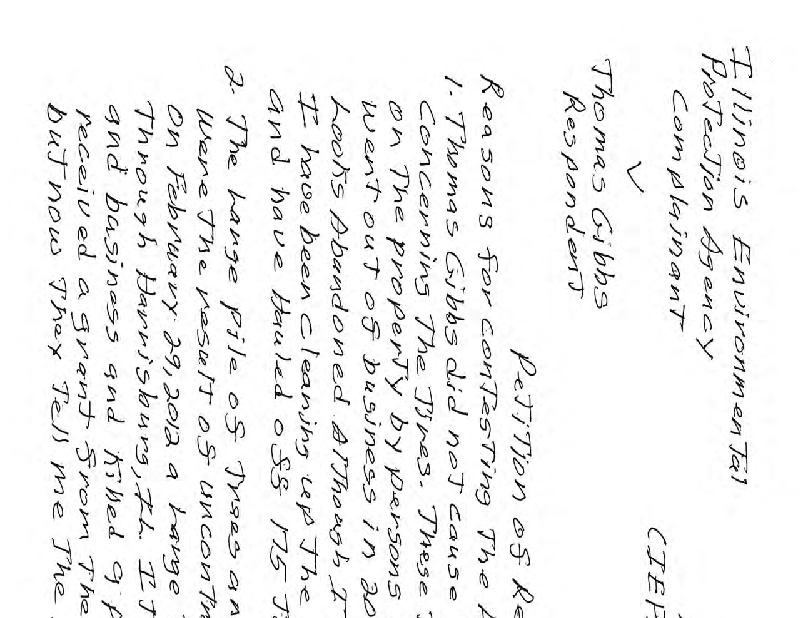 Illinois Environmental
Protection Agency
Complainant
(IEP
V
Thomas Gibbs
Respondent
Petition of Re
Reasons for contesting The
1. Thomas Gibbs did not cause
Concerning The Tires. These
on The property by persons
went out of business in 20
Looks Abandoned. Although I
I have been cleaning up The
and have Hauled off 175 T
2. The Large pile of Trees an
Were The result of uncont
On February 29, 2012 a Large
Through Harrisburg, IL. IT
and business and Killed 9 p
received a grant from The
but now They Tell me The